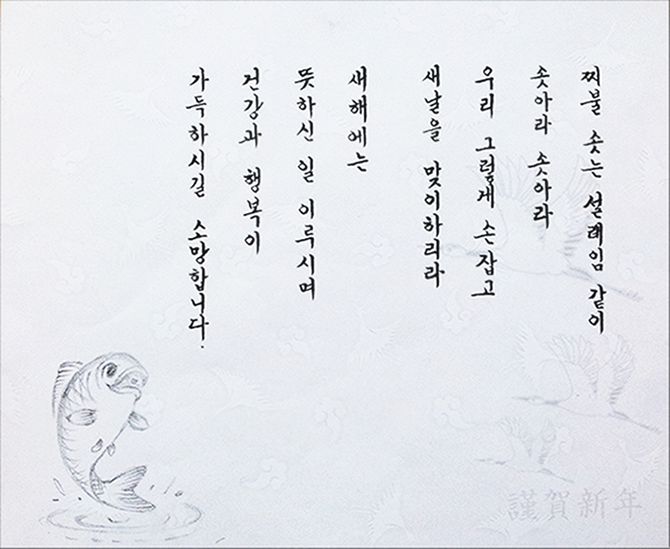 찌불 솟는 설레임 같이
솟아라 솟아라
우리 그렇게 손잡고
새날을 맞이하리라
새해에는
뜻하신 일 이루시며
건강과 행복이
가득하시길 소망합니다.
謹賀新年